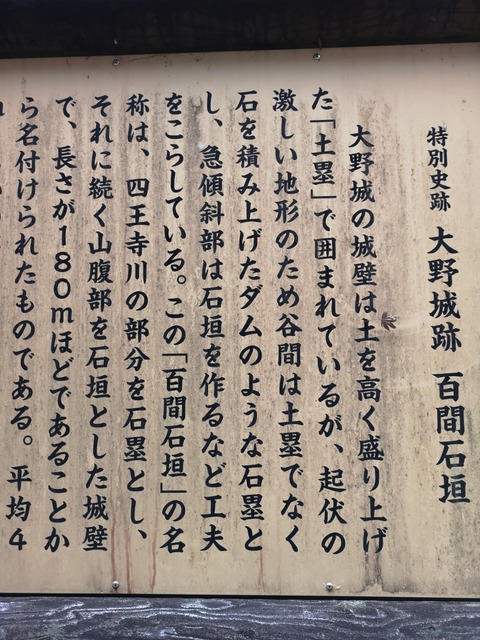 特別史跡 大野城跡 百間石垣
大野城の城壁は土を高く盛り上げ
た「土塁」で囲まれているが、起伏の
激しい地形のため谷間は土塁でなく
石を積み上げたダムのような石塁と
し、急傾斜部は石垣を作るなど工夫
をこらしている。この「百間石垣」の名
称は、四王寺川の部分を石塁とし、
それに続く山腹部を石垣とした城壁
で、長さが180mほどであることか
ら名付けられたものである。平均4